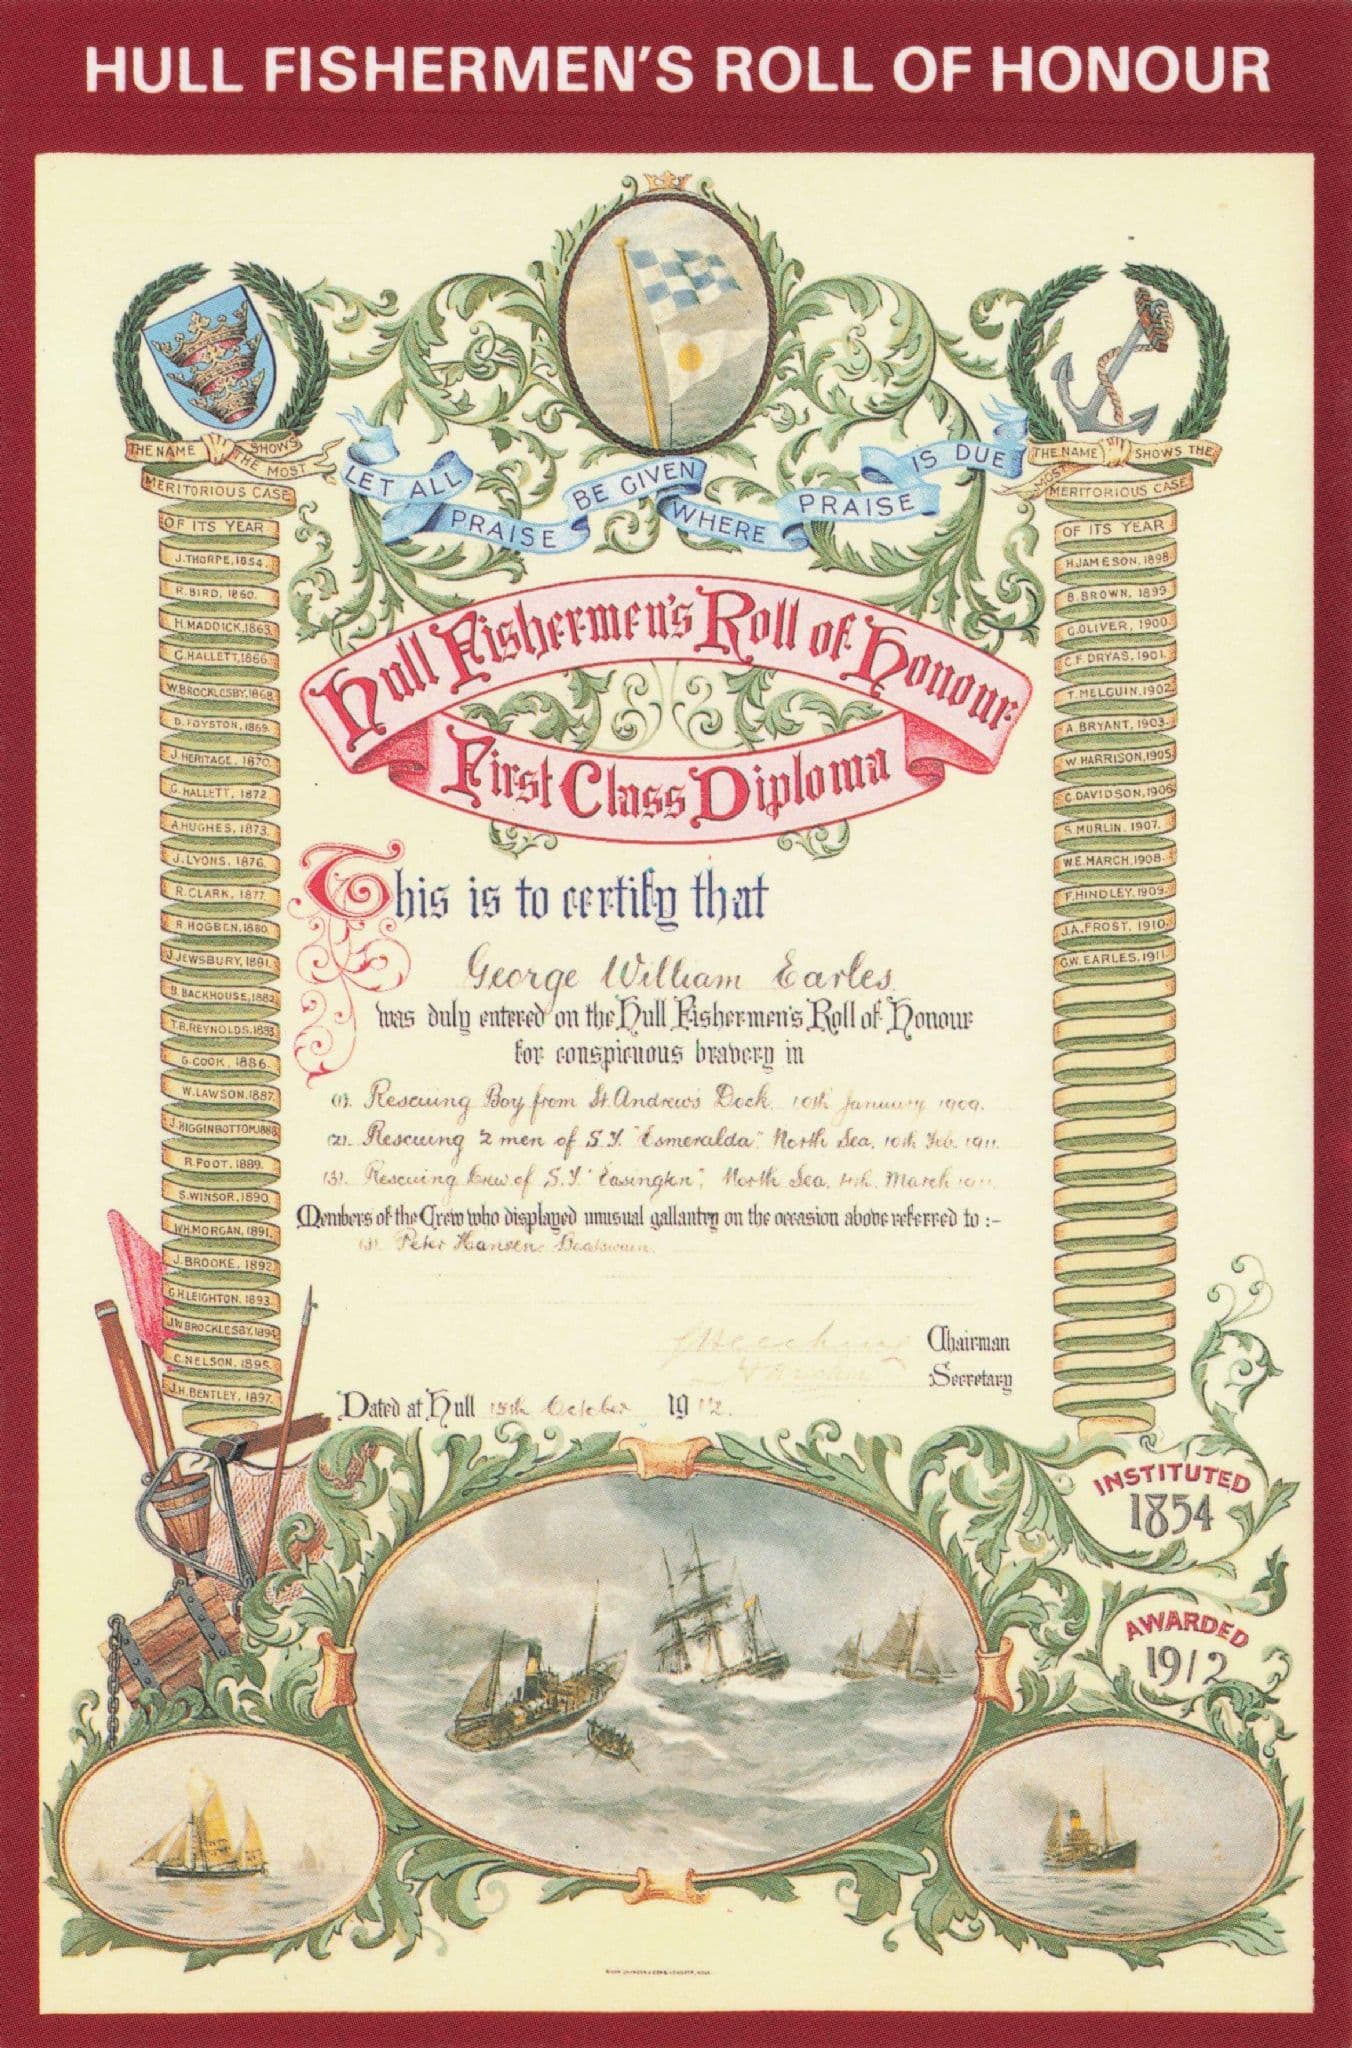 HULL FISHERMEN'S ROLL OF HONOUR
THE NAME SHOWS
THE MOST
MERITORIOUS CASE
OF ITS YEAR
J. THORPE, 1854.
R. BIRD, 1860.
H. MADDICK, 1863.
C. HALLETT, 1866.
W. BROCKLESBY, 1868.
D. FOYSTON, 1869.
J. HERITAGE, 1870.
G. HALLETT, 1872.
A. HUGHES, 1873.
J. LYONS, 1876.
R. CLARK, 1877.
R. HOGBEN, 1880.
J. JEWSBURY, 1881.
B. BACKHOUSE, 1882.
T.B. REYNOLDS, 1883.
G. COOK, 1886.
W. LAWSON, 1887.
J. HIGGINBOTTOM, 1888
R. FOOT, 1889.
S. WINSOR, 1890.
W.H. MORGAN, 1891.
J. BROOKE, 1892
G.H. LEIGHTON, 1893.
J.W. BROCKLESBY, 1894
C. NELSON, 1895.
J.H. BENTLEY, 1897.
LET ALL PRAISE BE GIVEN WHERE PRAISE IS DUE
THE NAME SHOWS THE
MOST
MERITORIOUS CASE
OF ITS YEAR
H. JAMESON, 1898.
B. BROWN, 1899.
G. OLIVER, 1900.
C.F. DRYAS, 1901.
T. MELGUIN, 1902
A. BRYANT, 1903.
W. HARRISON, 1905
C. DAVIDSON, 1906
S. MURLIN. 1907.
W.E. MARCH, 1908.
F. HINDLEY, 1909.
J.A. FROST, 1910.
G.W. EARLES, 1911.
Hull Fishermen's Roll of Honour
First Class Diploma
This is to certify that
George William Earles
was duly entered on the Hull Fishermen's Roll of Honour
for conspicuous bravery in
(1). Rescuing Boy from St. Andrew's Dock, 10th January 1909.
(2). Rescuing 2 men of S.T. "Esmeralda", North Sea, 10th Feb. 1911.
(3). Rescuing Crew of S.T. "Easington", North Sea, March
Members of the Crew who displayed unusual gallantry on the occasion above referred to :-
(3). Peter Hansen. Boatswain.
Chairman
Secretary
Dated at Hull 15th October 1912.
INSTITUTED
1854
AWARDED
1912